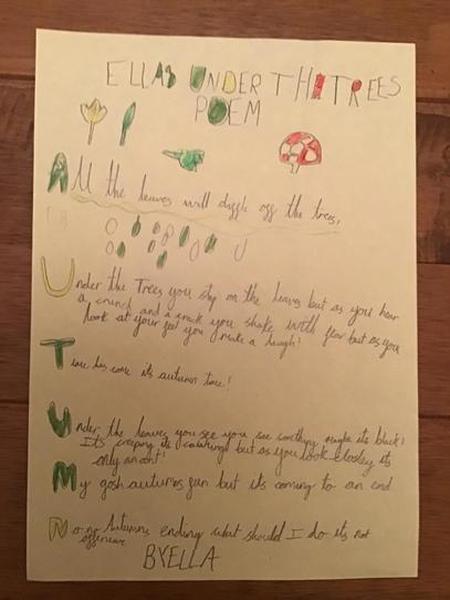 ELLAS UNDER THE TREES
POEM
All the leaves will diggle off the trees,
Under the Trees you step on the leaves but as you hear
a crunch and a crack you shake with fear but as you
look at your feet you make a laugh!
Time has come its autumn time!
Under the leaves you see you see somthing maybe its black!
Its creeping its crawling but as you look closley its
only an ant!
My gosh autumns fun but its coming to an end
No no Autumns ending what should I do its not
BYELLA